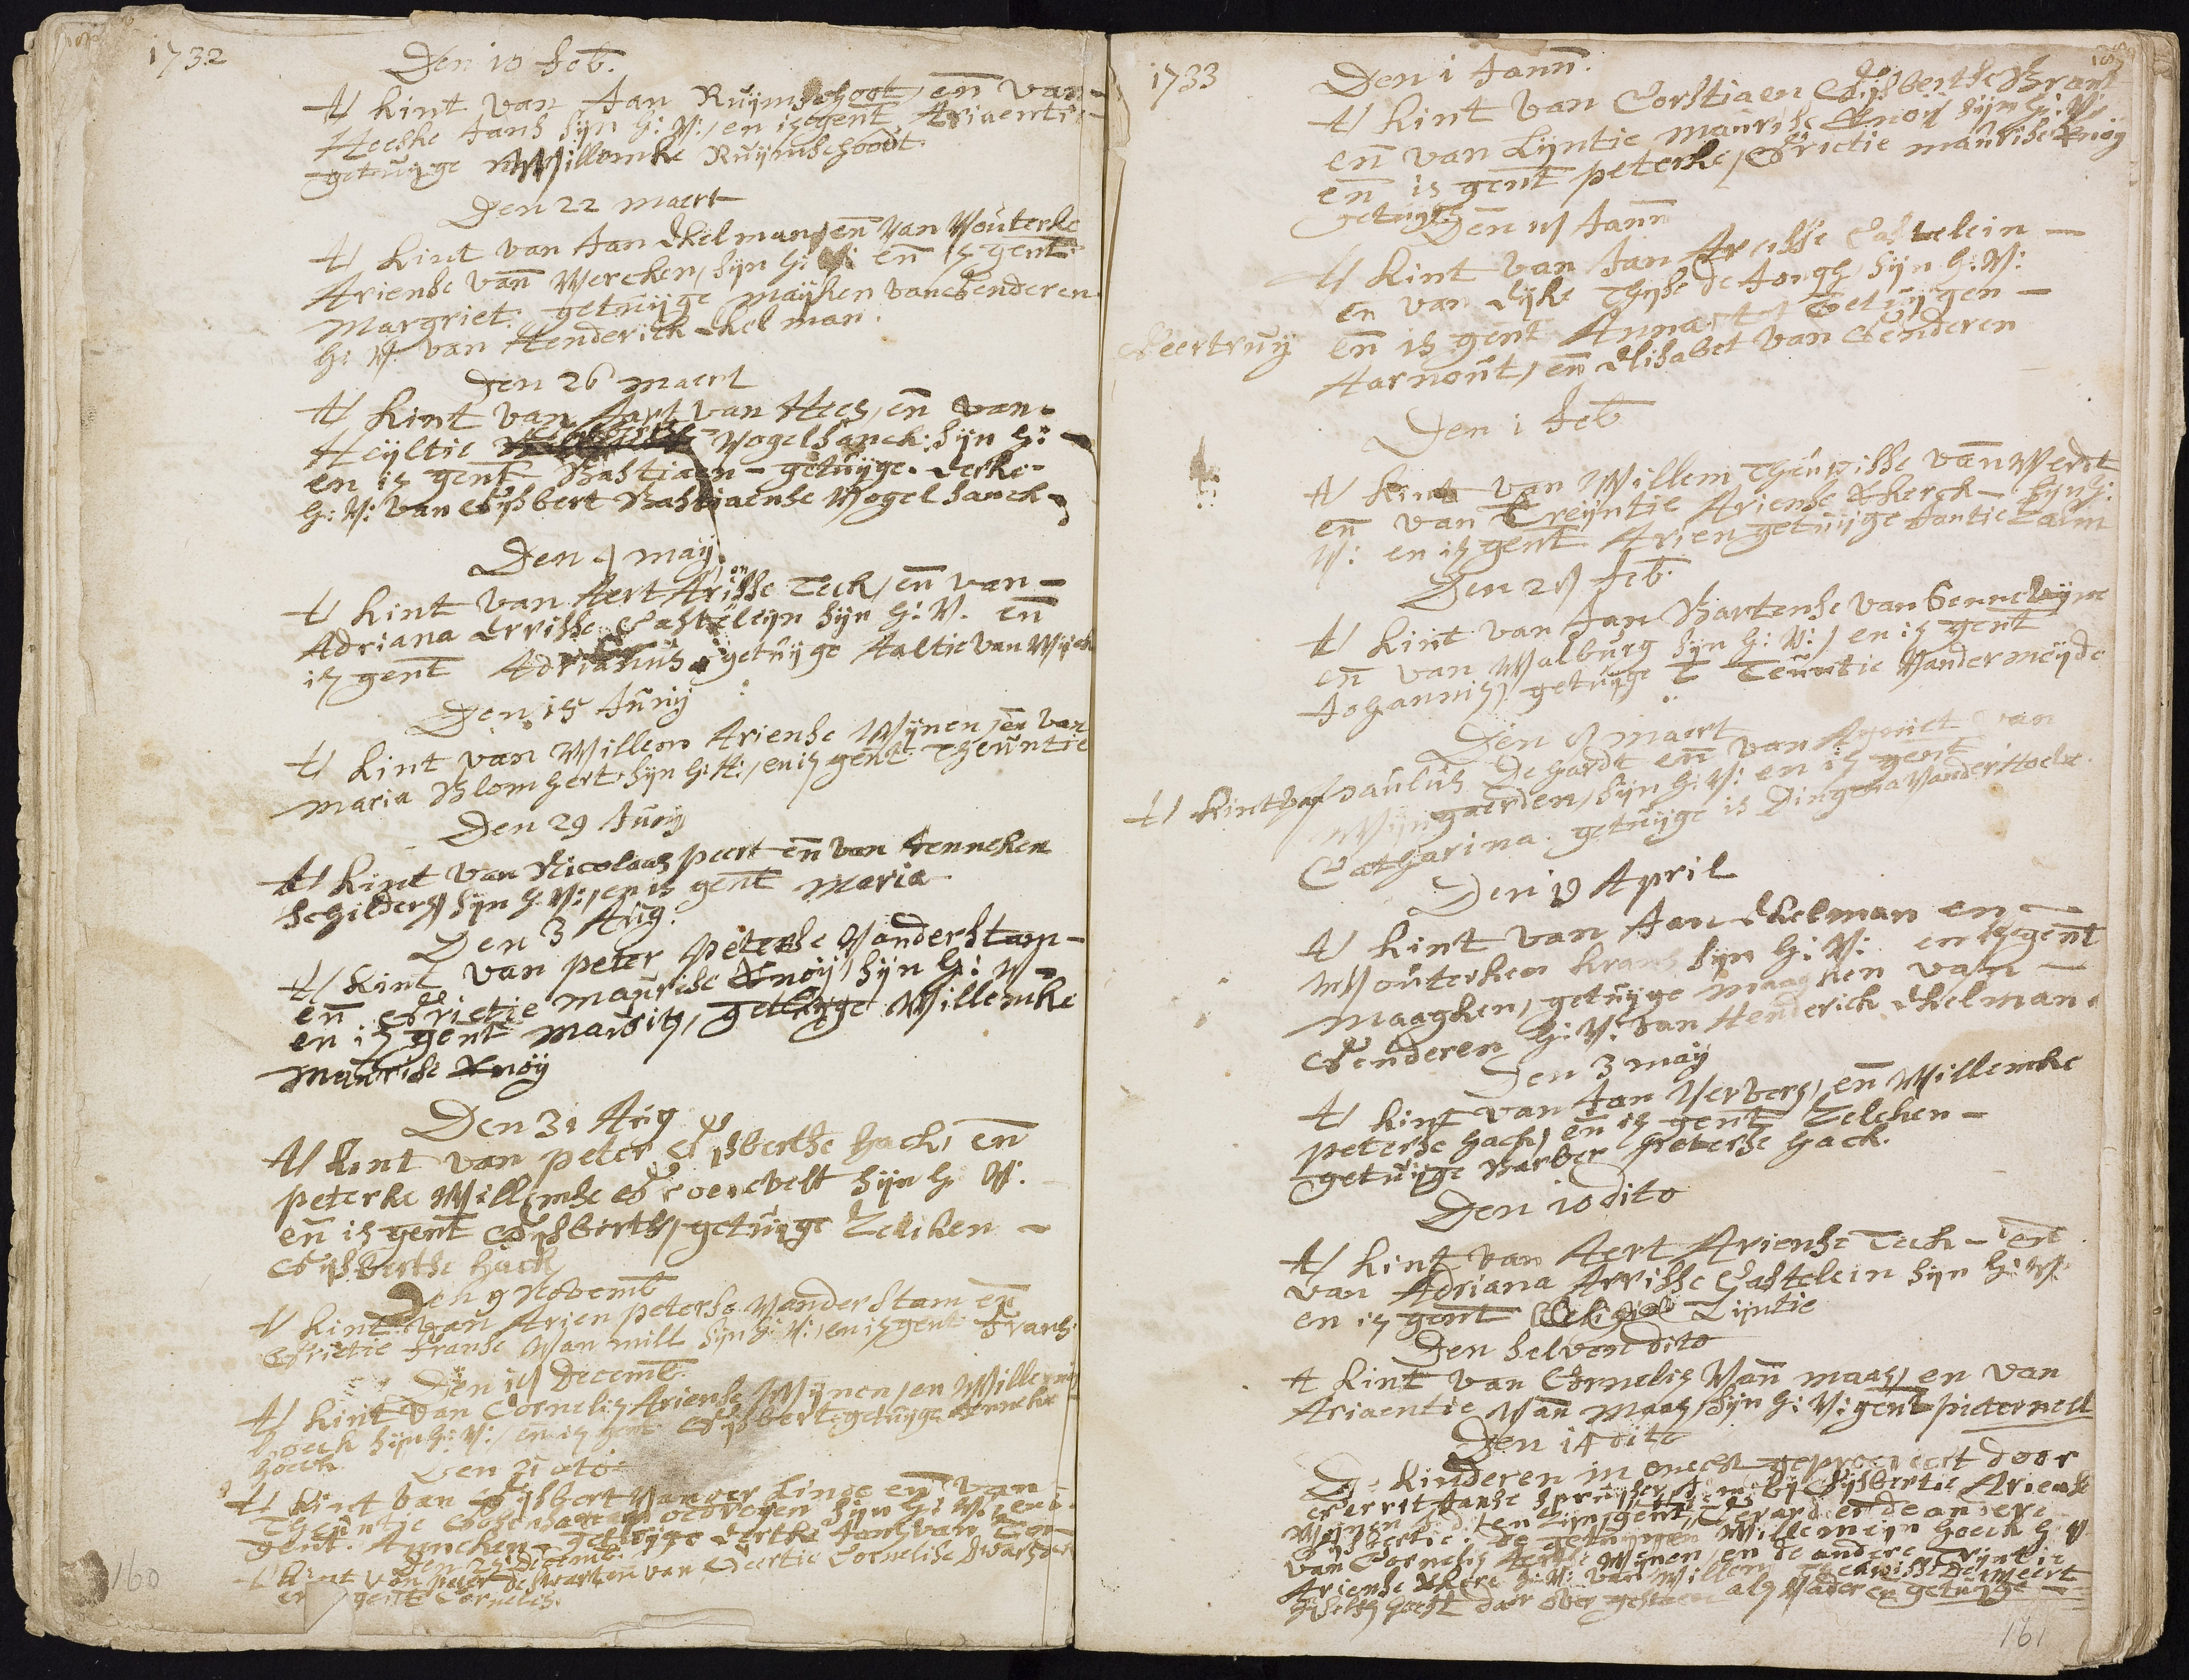 1732
Den 10 Feb.
tƚ kint van Jan Ruijmschoot, en̄ van-
Heeske Jans sijn h: v:, en is gent Ariaentie
getuijge Willemke Ruijmschoodt
Den 22 maert
t kint van Jan Ekelman, en̄ van Wouterke
Ariense van̄ Wercken, sijn h: v: en̄ is gent
Margriet. getuijge maijken van Genderen
h: v: van Henderick Ekelman.
Den 26 maert
t kint van Aart van Hees, en̄ van-
Heijltie Vogelsanck. sijn h: -
en is gent Bastiaen - getuijge. Derke-
h: v: van Gijsbert Bastiaense Vogelsanck
Den 4 maij.
t kint van Aert Ariense Teck, en̄ van -
Adriana Arrisse Casteleijn sijn h: v. en̄
is gent Adrianus getuijge Aaltie van Wijck
Den 15 Junij
t kint van Willem Ariense Wijnen, en̄ van
Maria Blomhert sijn h: H:, en is gent Theuntie
Den 29 Junij
t kint van Nicolaas peert en̄ van Jenneken
Schilders sijn h: v:, en is gent Maria
Den 3 Aug.
t kint van peter peterse Vanderstam -
en̄ Grietie maurise Knoij, sijn h: v
en is gent Maurits, getuijge Willemke
Maurise Knoij
Den 31 Aug
t kint van peter Gijsbertse hack, en̄
peterke Willemse Groenevelt sijn h v:
en̄ is gent Gijsberts, getuijge Zeliken -
Gijsbertse hack
Den 9 Novemb
t kint van Arien peterse Vanderstam en̄
Grietie Franse Van mill sijn h: v:, en is gent Frans.
Den 14 Decemb.
t kint van Cornelis Ariense Wijnen, en Willemijn
hoeck sijn h: v:, en̄ is gent Gijsbert. getuijge Jenneke
hoeck
Den 21 dto
t kint van Gijsbert Vander Linde en̄ van
Theuntie sijn h: v: en is
gent. Anneken - getuijge Dertke Jans van
Den 25 Decemb.
t kint von peter de Swart en̄ van Geertie Cornelise Swartse
en gent Cornelis.
160
1733
Den 1 Jann̄.
t kint van Corstiaen Gijsbertse Brant
en̄ van Lijntie maurise Knoij sijn h: v:
en̄ is gent peterke, Grietie maurise Knoij
getuijge
Den 11 Jann̄
t kint van Jan Arisse Castelein -
en van Eijke Thijse de Jongh, sijn h: v:
Geertruij en̄ is gent Anna Getuijgen -
Aarnout, en̄ Elisabet van Genderen
Den 1 Feb
t kint van Willem Theunisse van̄ Werdt
en̄ van Treijntie Ariense Kherck - sijn h:
v: en is gent Arien getuijge Jantie Laam
Den 21 Feb.
t kint van Jan Bartense van Gennelijne
en̄ van Walburg sijn h: v:, en is gent
Johannis, getuijge T Teuntie Vandermeijde
Den 8 maert
t kint van paulus De hardt en̄ van Agniet van
Wijngaerden, sijn h: v: en is gent
Catharina. getuijge is Dingena Vander Hoek.
Den 19 April
t kint van Jan Ekelman en -
Wouterken krans sijn h: v: en is gent
Maaghen, getuijge Maaghen van -
Genderen h: v: van Henderick Ekelman.
Den 3 maij
t kint van Jan Verberg, en̄ Willemke
peterse hack, en̄ is gent Zelcken -
getuijge Barber peterse hack.
Den 10 dito
t kint van Aert Ariense Teck - en̄
van Adriana Arrisse Castelein sijn h: v.
en is gent Lijntie
Den selven dito
t kint van Cornelis Van̄ maas, en van
Ariaentie Van̄ Maas, sijn h: v: gent pieternell
Den 14 dito
De kinderen in onecht geprocreert door
Gerrit Janse Spruijt, bij Gijsbertie Ariense
Wijnen en sijn gent, Gerard en̄ de andere
Gijsbertie. De getuijgen Willemijn hoeck h v
van Cornelis Aertse Wijnen, en de andere Trijntie
Ariense Kherc h: v: van Willem Theunisse de Weert
selfs heeft daer over gestaen als Vader en getuijge
161